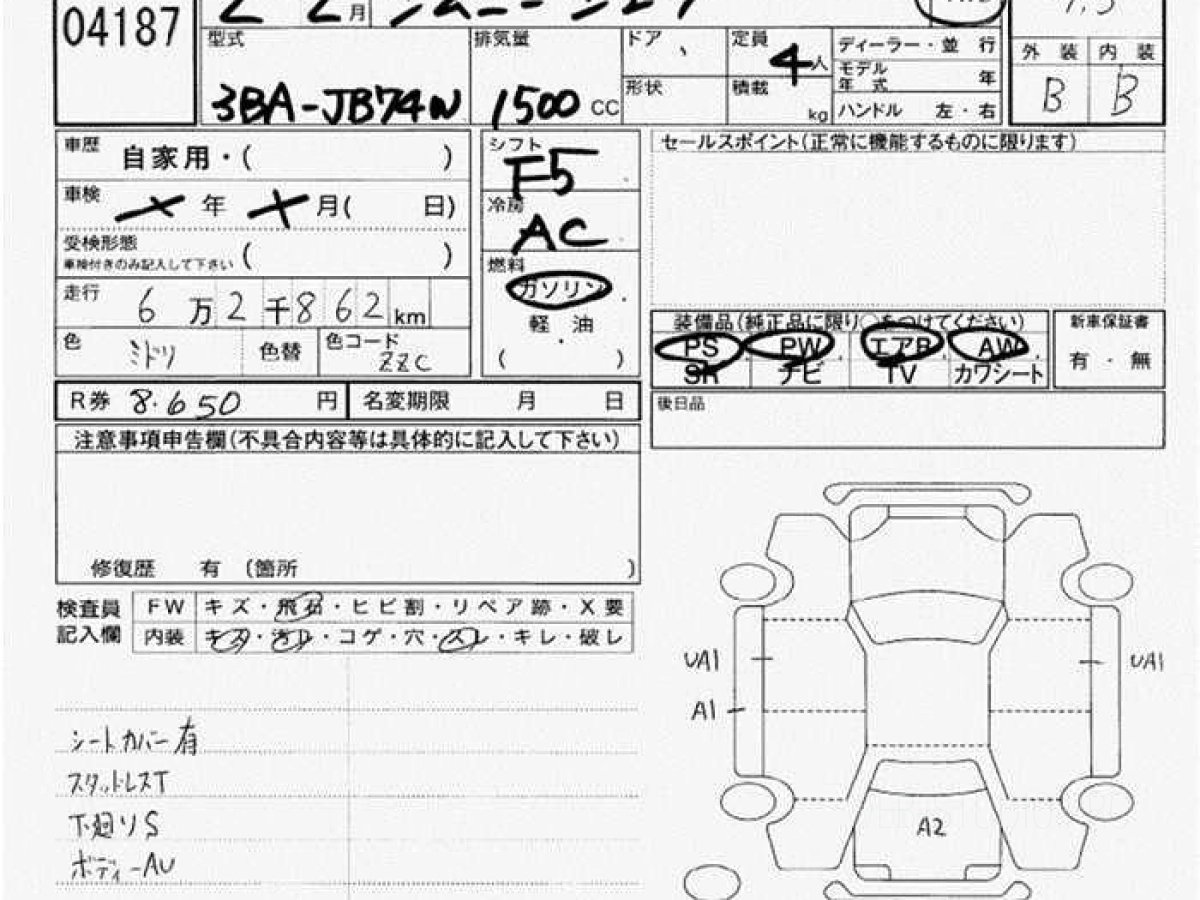 04187
2 2月 ジムニーシエラ
型式 排気量 ドア 定員 4人 ディーラー・並 行
モデル年式 年
外 装 内 装
3BA-JB74W 1500 CC 形状 積載 kg ハンドル 左・右
B B
車歴 自家用・( )
シフト F5
セールスポイント(正常に機能するものに限ります)
車検 年 月( 日)
冷房 AC
受検形態
車検付きのみ記入して下さい ( )
燃料 ガソリン
走行 6万2千862km
軽 油
装備品(純正品に限り○をつけてください)
新車保証書
色 ミドリ 色替 色コード ZZC
( )
PS PW エアB AW
有・無
SR ナビ TV カワシート
R券 8.650 円 名変期限 月 日
後日品
注意事項申告欄(不具合内容等は具体的に記入して下さい)
修復歴 有 (箇所 )
検査員記入欄
FW キズ・飛石・ヒビ割・リペア跡・X要
内装 キズ・汚れ・コゲ・穴・スレ・キレ・破レ
UA1 UA1
A1
シートカバー有
スタッドレスT
下廻りS
A2
ボディーAU